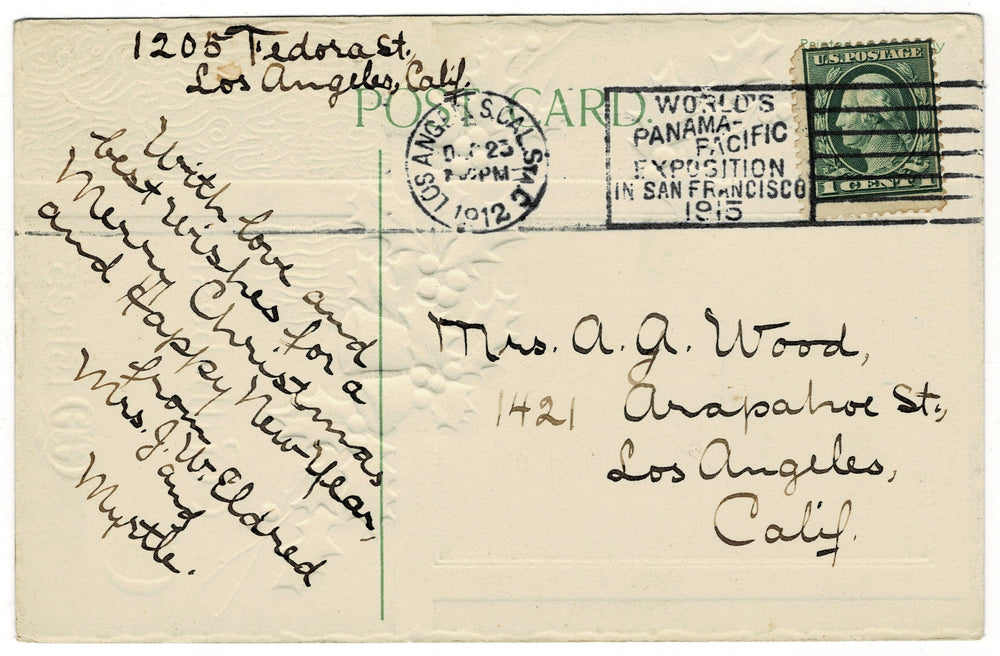 1205 Fedora St.
Los Angeles, Calif.
POST CARD.
U.S. POSTAGE
1 CENT 1
LOS ANGELES, CAL. STA. C
DEC 23
PM
1912
WORLD'S
PANAMA-
PACIFIC
EXPOSITION
IN SAN FRANCISCO
1915
With love and
best wishes for a
Merry Christmas
and Happy New Year,
from
Mrs. J. W. Eldred
and
Myrtle.
Mrs. A. A. Wood,
1421 Arapahoe St.,
Los Angeles,
Calif.